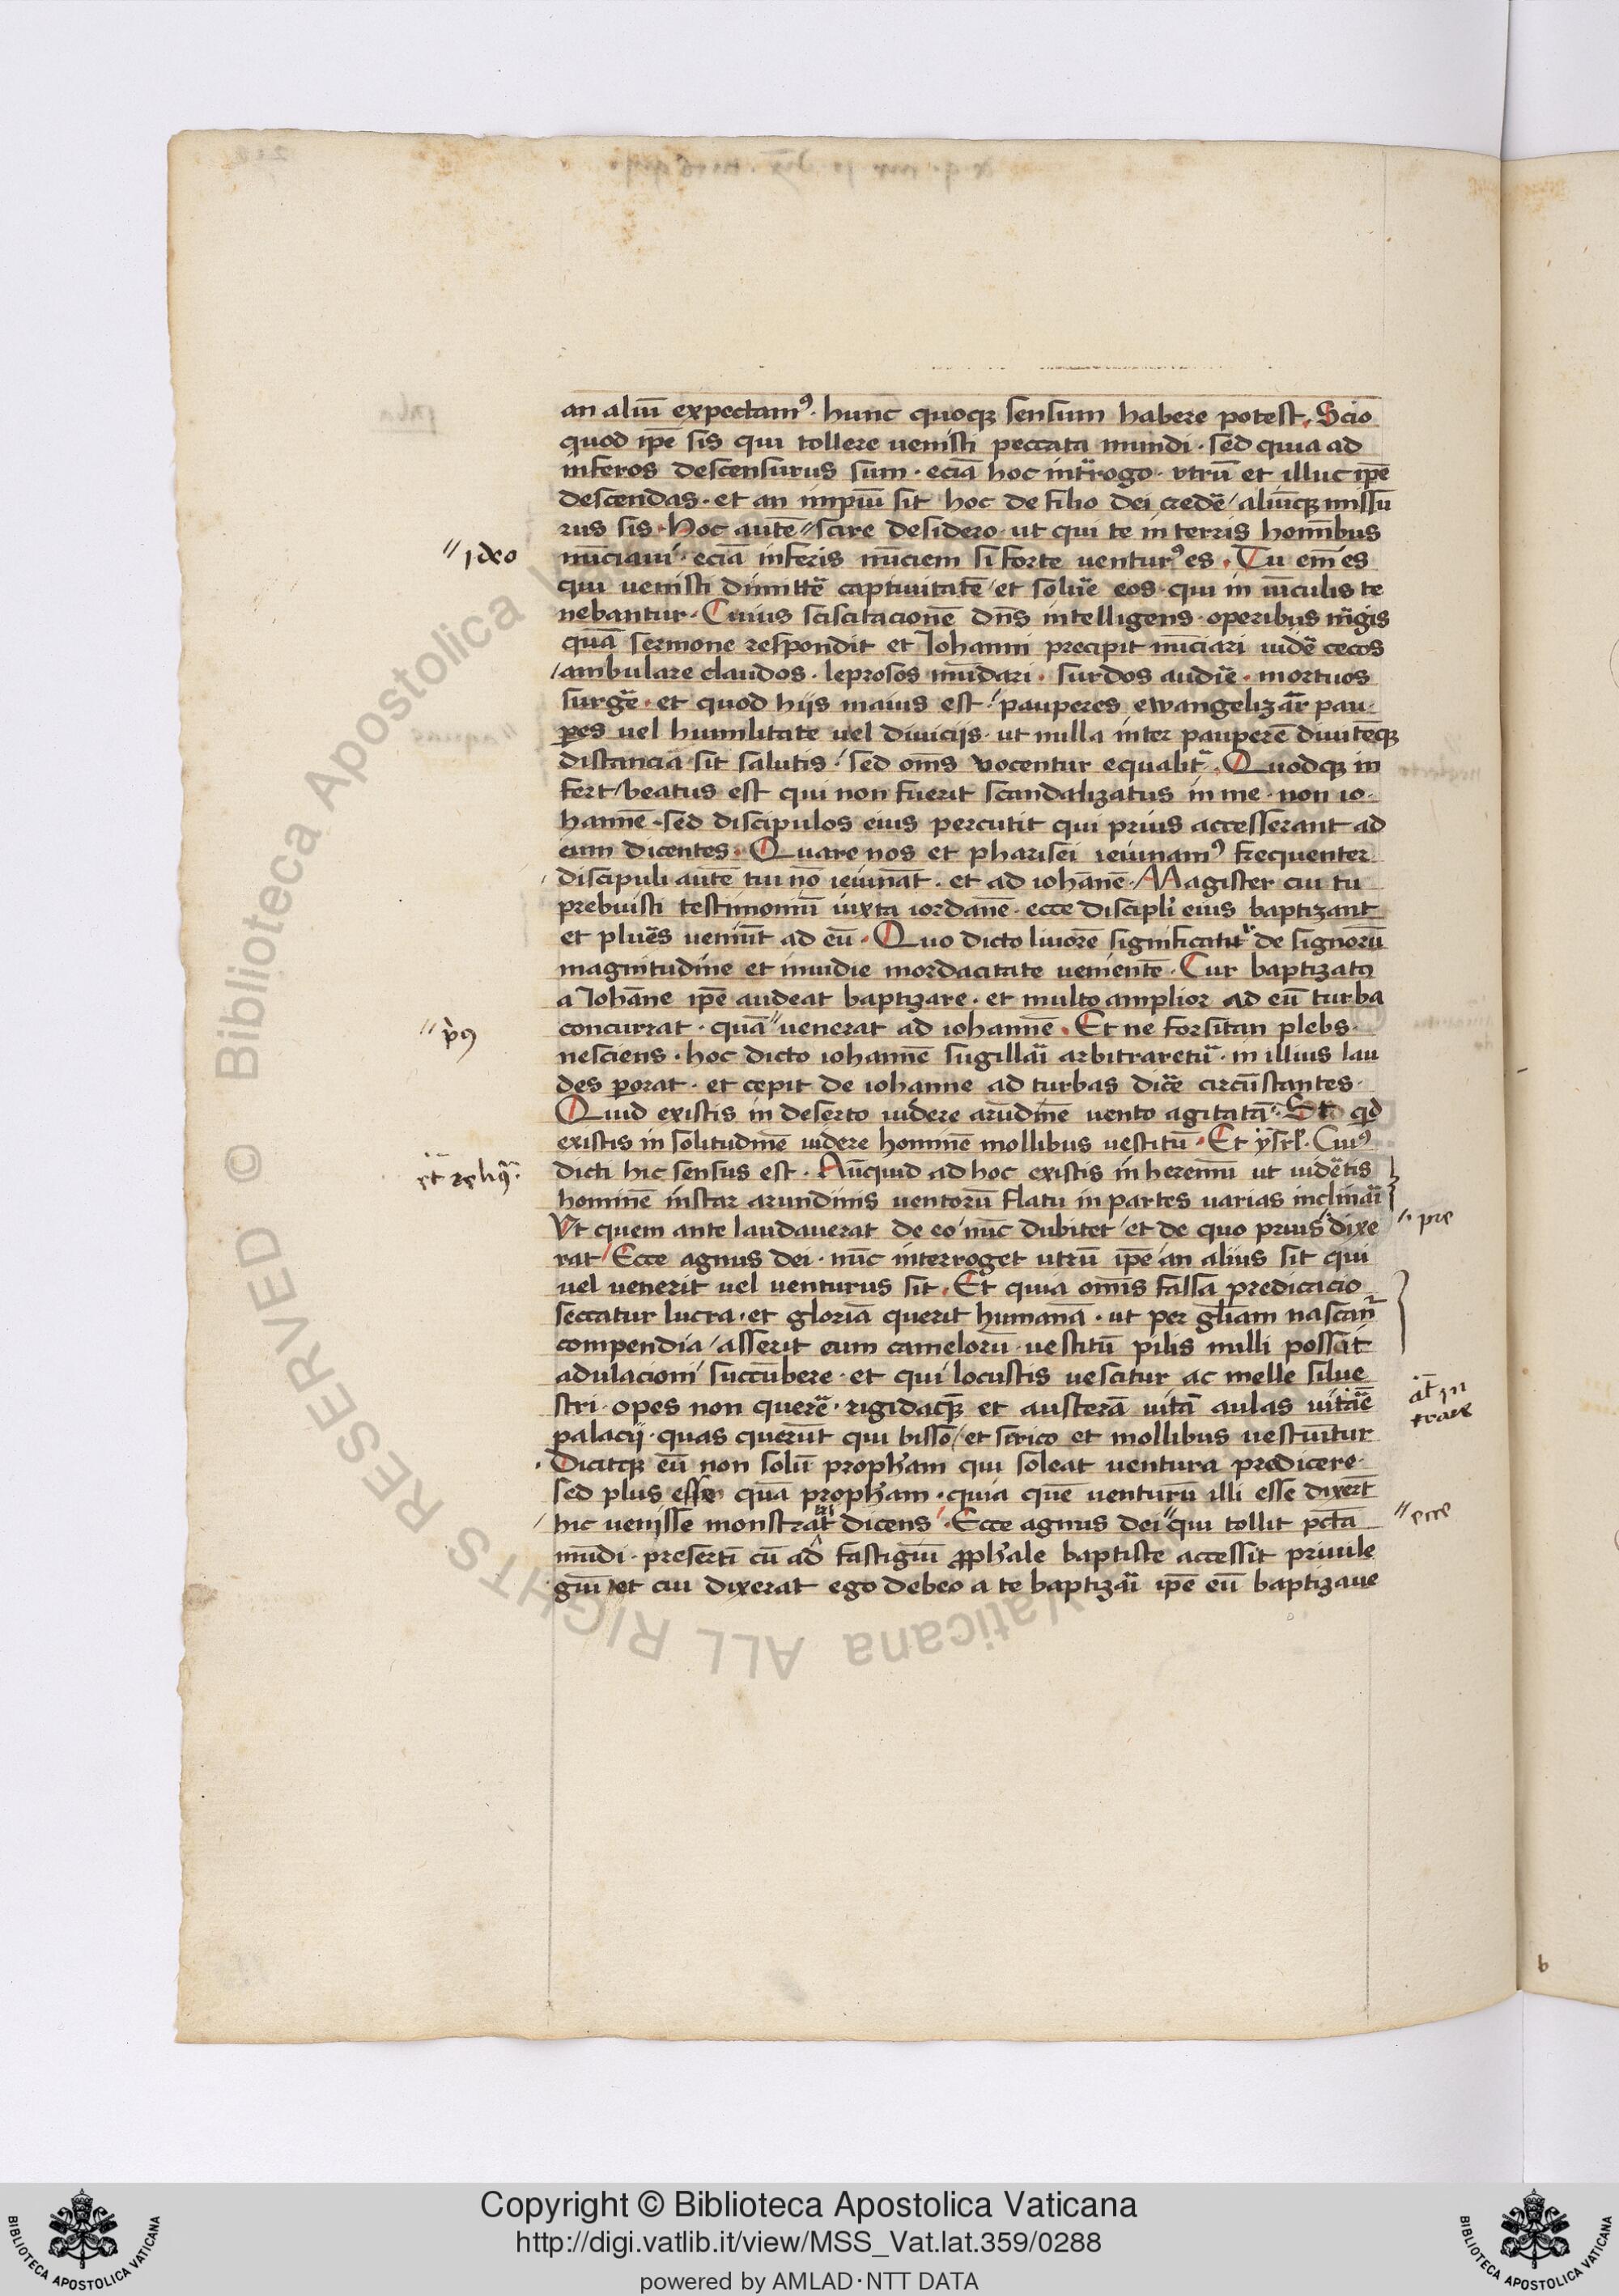 an aliū expectamꝰ · hunc quoqꝫ sensum habere potest . Scio
quod ip̄e sis qui tollere uenisti peccata mundi · sed quia ad
inferos descensurus sum · eciā hoc intr̄rogo · vtrū et illuc ip̄e
descendas · et an impiū sit hoc de filio dei credē / aliūcqꝫ missū
rus sis · Hoc autē // scire desidero · ut qui te in terris homībus
// ideo
nūciaui · eciā inferis nūciem si forte venturꝰ es . Tu em̄ es
qui uenisti dimittē captiuitatē / et soluē eos · qui in uīculis te
nebantur · Cuius sciscitacionē dn̄s intelligens · operibus mḡis
quā sermone respondit et Iohanni precipit nūciari uidē cecos
/ ambulare claudos · leprosos mūdari · surdos audiē · mortuos
surgē · et quod hijs maius est / pauperes ewangelizār̄ pau-
ꝑes uel humilitate uel diuicijs · ut nulla inter pauperē diuitēqꝫ
distancia sit salutis / sed om̄s vocentur equalit̄ . Quodqꝫ in
fert / beatus est qui non fuerit scandalizatus in me · non io-
hannē · sed discipulos eius percutit qui prius accesserant ad
eum dicentes · Quare nos et pharisei ieiunamꝰ frequenter
/ discipuli autē tui nō ieiunāt · et ad iohānē · Magister cui tu
prebuisti testimoniū iuxta iordanē · ecce discipl̄i eius baptizant
et plurēs ueniūt ad eū · Quo dicto liuorē significatur de signorū
magnitudine et inuidie mordacitate uenientē · Cur baptizatꝰ
a Iohāne ip̄e audeat baptizare · et multo amplior ad eū turba
// pͥꝰ
concurrat · quā // uenerat ad iohannē . Et ne forsitan plebs
nesciens · hoc dicto iohannē sugillāi arbitraretur̄ · in illius lau
des ꝑorat · et cepit de iohanne ad turbas dicē circūstantes ·
Quid existis in deserto uidere arūdinē uento agitatā · St̄ qd̄
existis in solitudinē uidere hominē mollibus uestitū · Et ysrl̄ · Cuiꝰ
et̄ reliqᷓ ·
dicti hic sensus est · Nūquid ad hoc existis in heremū ut uidētis
hominē instar arundinis uentorū flatu in partes uarias inclināi
Vt quem ante laudauerat de eo / nūc dubitet / et de quo prius // dixe
// pre
rat / Ecce agnus dei · nūc interroget utrū ip̄e / an alius sit qui
uel uenerit uel venturus sit · Et quia omīs falsa predicacio
seccatur lucra · et gloriā querit humanā · ut per gl̄iam nascan̄
compendia / asserit eum camelorū · uestitū pilis nulli possit
adulacioni succūbere · et qui locustis uescitur ac melle silue
stri · opes non querē · rigidaqꝫ et austerā uitā aulas uitārē
al̄ in
trare
palacij · quas querūt qui bisso / et sirico et mollibus uestiūtur
· Dicitqꝫ eū non solū prophetam qui soleat uentura predicere ·
sed plus esse quā prophetam · quia quē venturū illi esse dixerūt
/ hic uenisse monstrat̄ dicens · Ecce agnus dei // qui tollit pctā
// ecce
mūdi · presertī cū ad fastigiū ꝓphetale baptiste accessit priuile
giū et cui dixerat ego debeo a te baptizāi ip̄e eū baptizaue
b
Copyright © Biblioteca Apostolica Vaticana
http://digi.vatlib.it/view/MSS_Vat.lat.359/0288
powered by AMLAD·NTT DATA